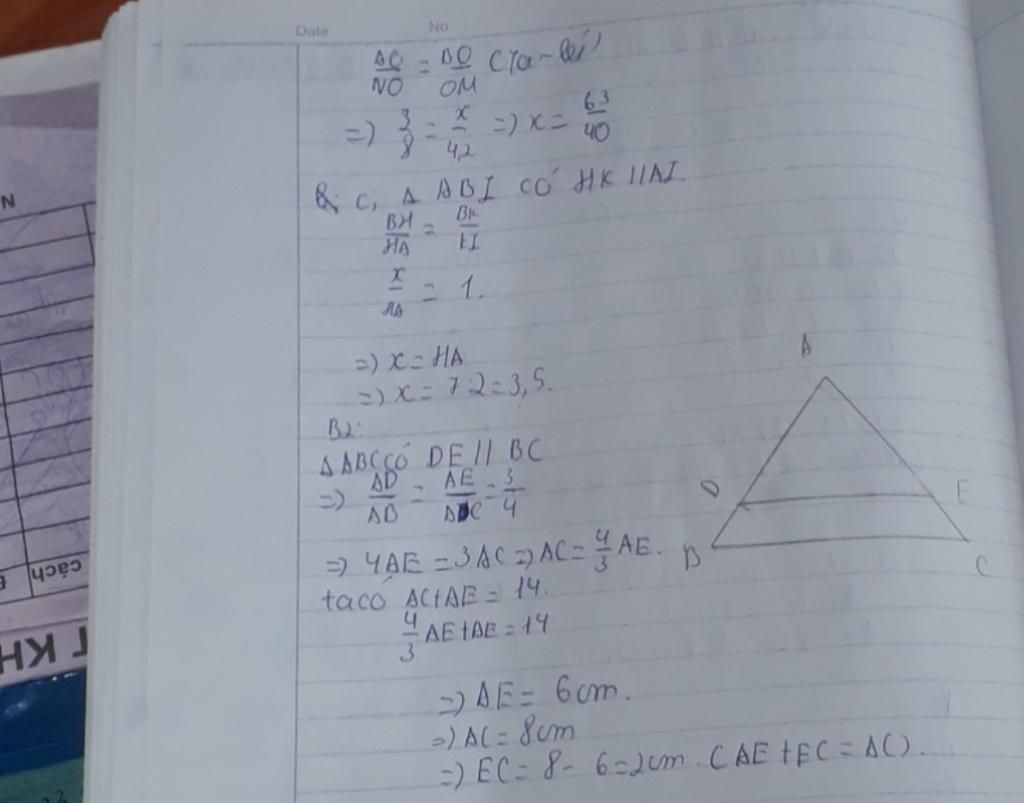 Date No
AO/NO = BO/OM (Ta-lét)
=) 3/8 = x/4,2 =) x = 63/40
c, Δ ABI có HK // AI.
BH/HA = BK/KI
x/HA = 1.
=) x = HA
=) x = 7:2 = 3,5.
B2:
Δ ABC có DE // BC
=) AD/AB = AE/AC = 3/4
=) 4AE = 3AC =) AC = 4/3 AE.
ta có AC+AE = 14.
4/3 AE+AE = 14
=) AE = 6cm.
=) AC = 8cm
=) EC = 8 - 6 = 2cm. (AE + EC = AC).
A
D
E
B
C
N
cách
T KH